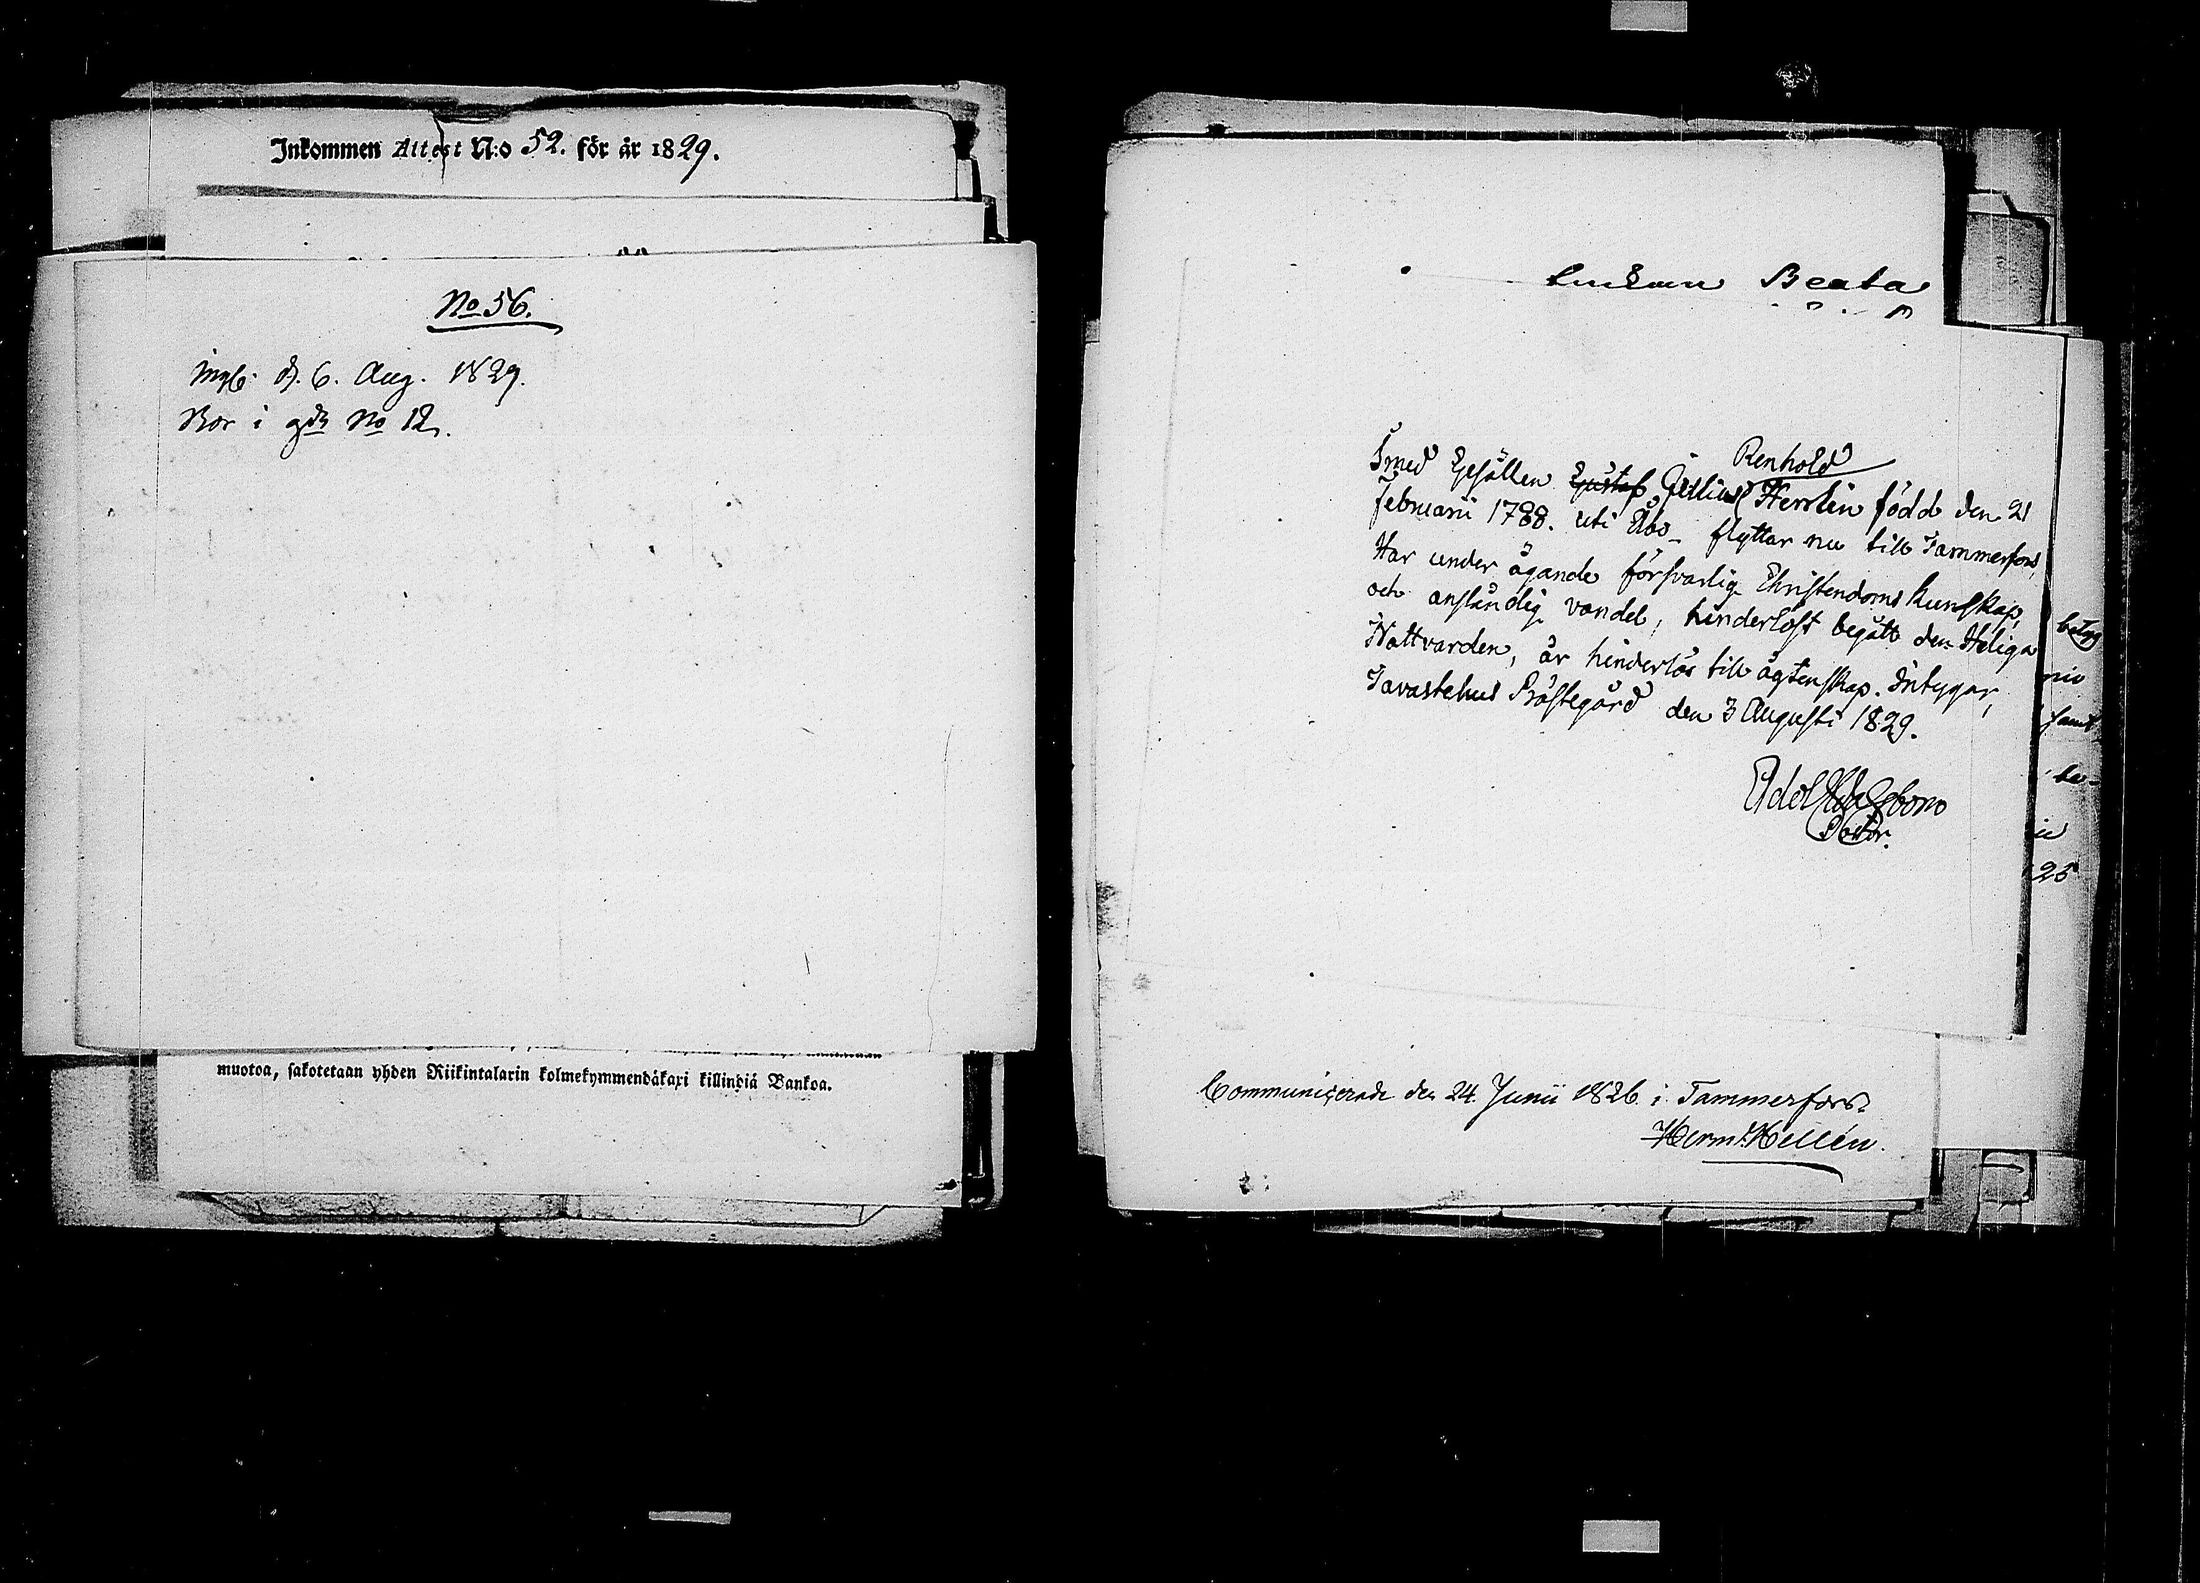 Inkommen Attest N:o 52. för år 1829.
No 56.
ingb. d. 6. Aug. 1829.
Bor i gdn No 12.
muotoa, sakotetaan yhden Riikintalarin kolmekymmendäkaxi killingiä Bankoa.
Enkan Beata
Renhold
Smed Gesällen Gustaf Julius Herrlin född den 21
Februarii 1788. uti Åbo - flyttar nu till Tammerfors,
Har under ägande försvarlig Christendoms kunskap,
och anständig vandel, hinderlöst begått den Heliga
Nattvarden, är hinderlös till ägtenskap. Intygar,
Tavastehus Prästegård den 3 Augusti 1829.
Adolf
Pastor.
betyg
nio
samt
be-
25
Communicerade den 24 Junii 1826 i Tammerfors.
Herm. Hellén.